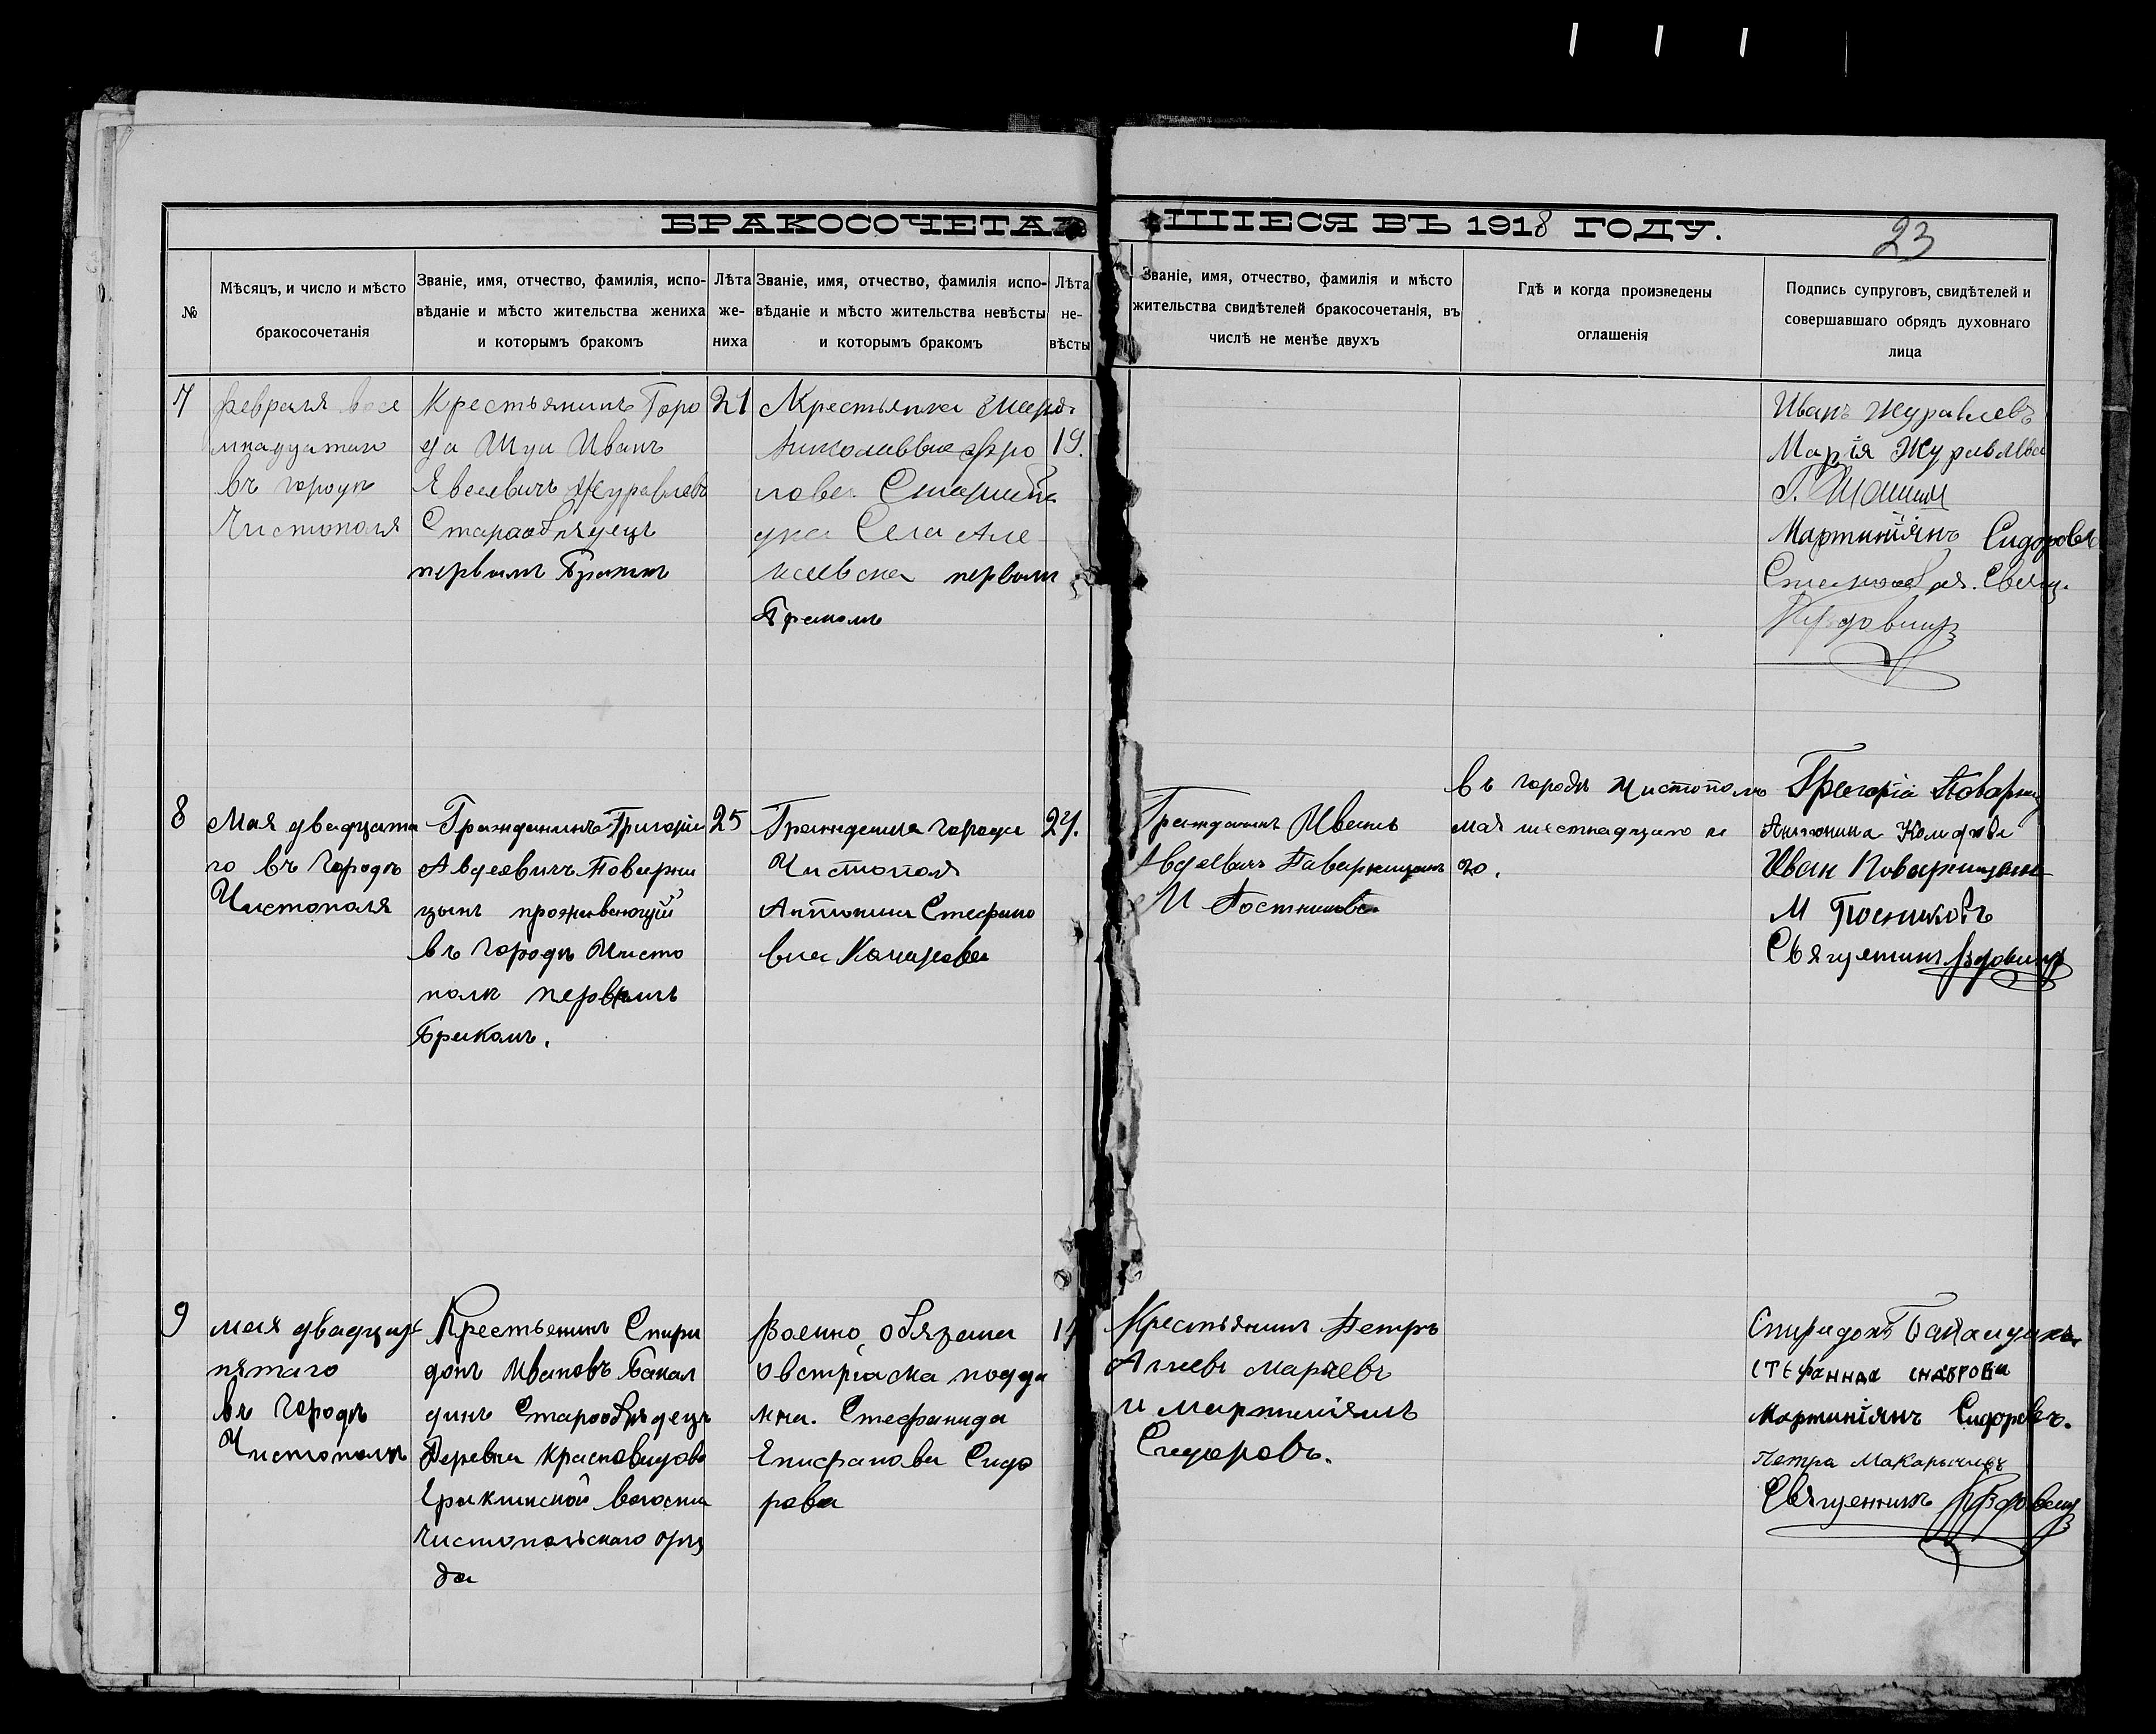 БРАКОСОЧЕТА
ШІЕСЯ ВЪ 1918 ГОДУ.
23
№
Мѣсяцъ, и число и мѣсто
бракосочетанія
Званіе, имя, отчество, фамилія, испо-
вѣданіе и мѣсто жительства жениха
и которымъ бракомъ
Лѣта
же-
ниха
Званіе, имя, отчество, фамилія испо-
вѣданіе и мѣсто жительства невѣсты
и которымъ бракомъ
Лѣта
не-
вѣсты
Званіе, имя, отчество, фамилія и мѣсто
жительства свидѣтелей бракосочетанія, въ
числѣ не менѣе двухъ
Гдѣ и когда произведены
оглашенія
Подпись супруговъ, свидѣтелей и
совершавшаго обрядъ духовнаго
лица
7
февраля восе
мнадцатаго
въ городѣ
Чистополя
Крестьянинъ Горо
да Шуи Иванъ
Евсеевичъ Журавлевъ
Стараобрядецъ
первымъ Бракомъ
21
Крестьянка
Николаевна Фро
лова
Села Але
ксеевска первымъ
Бракомъ
19.
Иванъ Журавлевъ
Марія Журавлва
Мартиніянъ Сидоровъ
Старообря. Свящ.
8
Мая двадцата
го въ Городѣ
Чистополя
Гражданинъ Григорій
Авдеевичъ Поварни
цынъ проживающій
въ городѣ Чисто
полѣ первымъ
Бракомъ.
25
Гражданка города
Чистополя
Антонина Стефано
вна
24.
Гражданинъ Иванъ
Авдеевичъ Паварницынъ
И
въ городѣ Чистополѣ
мая шестнадцаго и
20.
Григорій Поварниц
Антонина
Иван Поварницынъ
М Посниковъ
Священникъ Вдовинъ
9
мая двадцать
пятаго
въ Городѣ
Чистополѣ
Крестьенинъ Спири
донъ Ивановъ Бакал
динъ Старообрядецъ
Деревни Краснов
волости
Чистопольскаго уѣз
да
Военно обязана
Овстріаска подда
нна. Стефанида
Епифанова Сидо
рова
Крестьянинъ Петръ
и Мартиніянъ
Сидоровъ.
Спиридонъ
Стефанида
Мартиніянъ Сидоровъ.
Петра Макарычевъ
Священникъ Вдовинъ